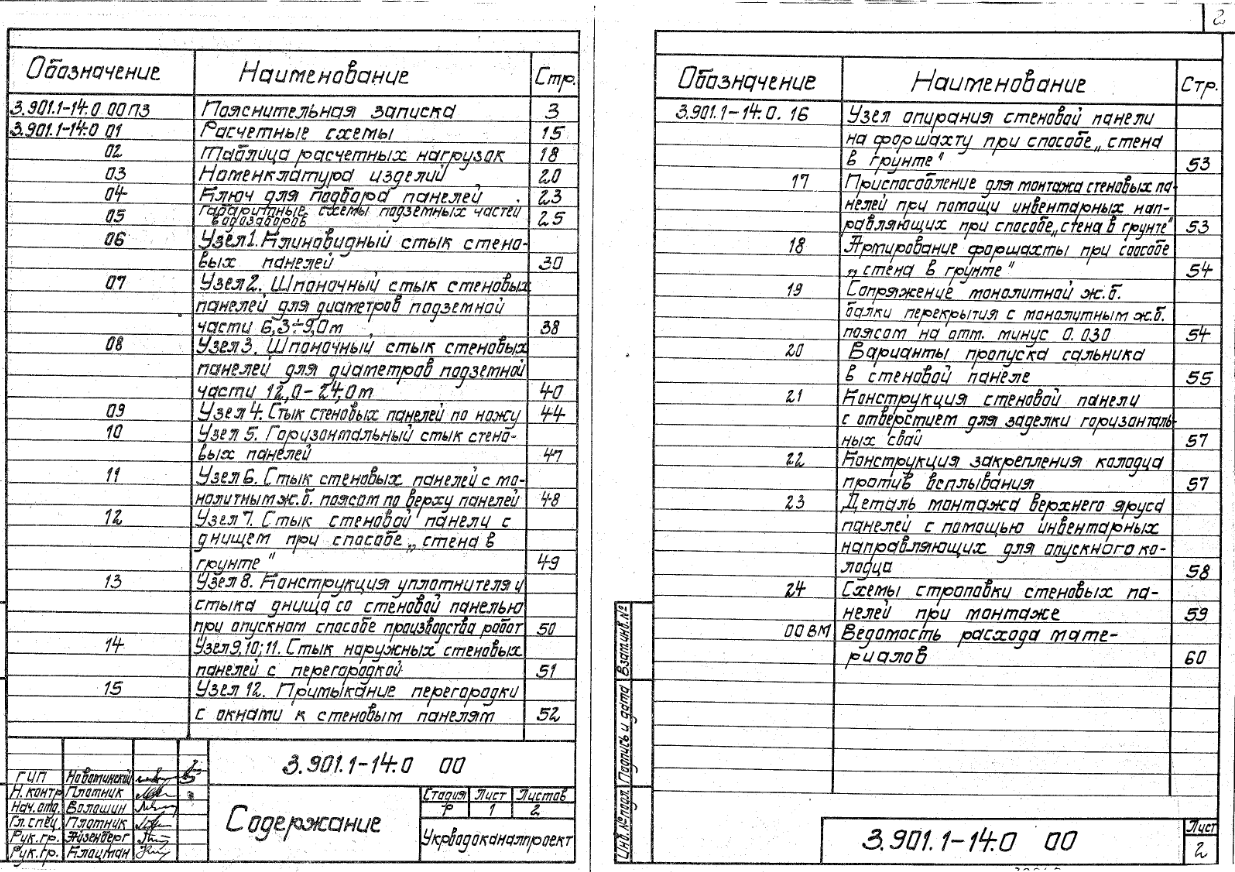 Обозначение Наименование Стр.
3.901.1-14.0 00 ПЗ Пояснительная записка 3
3.901.1-14.0 01 Расчетные схемы 15
02 Таблица расчетных нагрузок 18
03 Номенклатура изделий 20
04 Ключ для подбора панелей 23
05 Габаритные схемы подземных частей
водозаборов 25
06 Узел 1. Клиновидный стык стено-
вых панелей 30
07 Узел 2. Шпоночный стык стеновых
панелей для диаметров подземной
части 6,3÷9,0м 38
08 Узел 3. Шпоночный стык стеновых
панелей для диаметров подземной
части 12,0-24,0м 40
09 Узел 4. Стык стеновых панелей по ножу 44
10 Узел 5. Горизонтальный стык стено-
вых панелей 47
11 Узел 6. Стык стеновых панелей с мо-
нолитным ж.б. поясом по верху панелей 48
12 Узел 7. Стык стеновой панели с
днищем при способе „стена в
грунте" 49
13 Узел 8. Конструкция уплотнителя и
стыка днища со стеновой панелью
при опускном способе производства работ 50
14 Узел 9,10;11. Стык наружных стеновых
панелей с перегородкой 51
15 Узел 12. Примыкание перегородки
с окнами к стеновым панелям 52
3.901.1-14.0 00
ГИП
Н. контр. Плотник
Нач. отд. Волошин
Гл. спец. Плотник
Рук. гр. Айзенберг
Рук. гр. Клоцман
Содержание
Стадия Лист Листов
Р 1 2
Укрводоканалпроект
2
Обозначение Наименование Стр.
3.901.1-14.0. 16 Узел опирания стеновой панели
на форшахту при способе „стена
в грунте" 53
17 Приспособление для монтажа стеновых па-
нелей при помощи инвентарных нап-
равляющих при способе „стена в грунте" 53
18 Армирование форшахты при способе
„стена в грунте" 54
19 Сопряжение монолитной ж.б.
балки перекрытия с монолитным ж.б.
поясом на отм. минус 0.030 54
20 Варианты пропуска сальника
в стеновой панеле 55
21 Конструкция стеновой панели
с отверстием для заделки горизонталь-
ных свай 57
22 Конструкция закрепления колодца
против всплывания 57
23 Деталь монтажа верхнего яруса
панелей с помощью инвентарных
направляющих для опускного ко-
лодца 58
24 Схемы строповки стеновых па-
нелей при монтаже 59
00 ВМ Ведомость расхода мате-
риалов 60
Инв.№подл. Подпись и дата Взам.инв.№
3.901.1-14.0 00
Лист
2